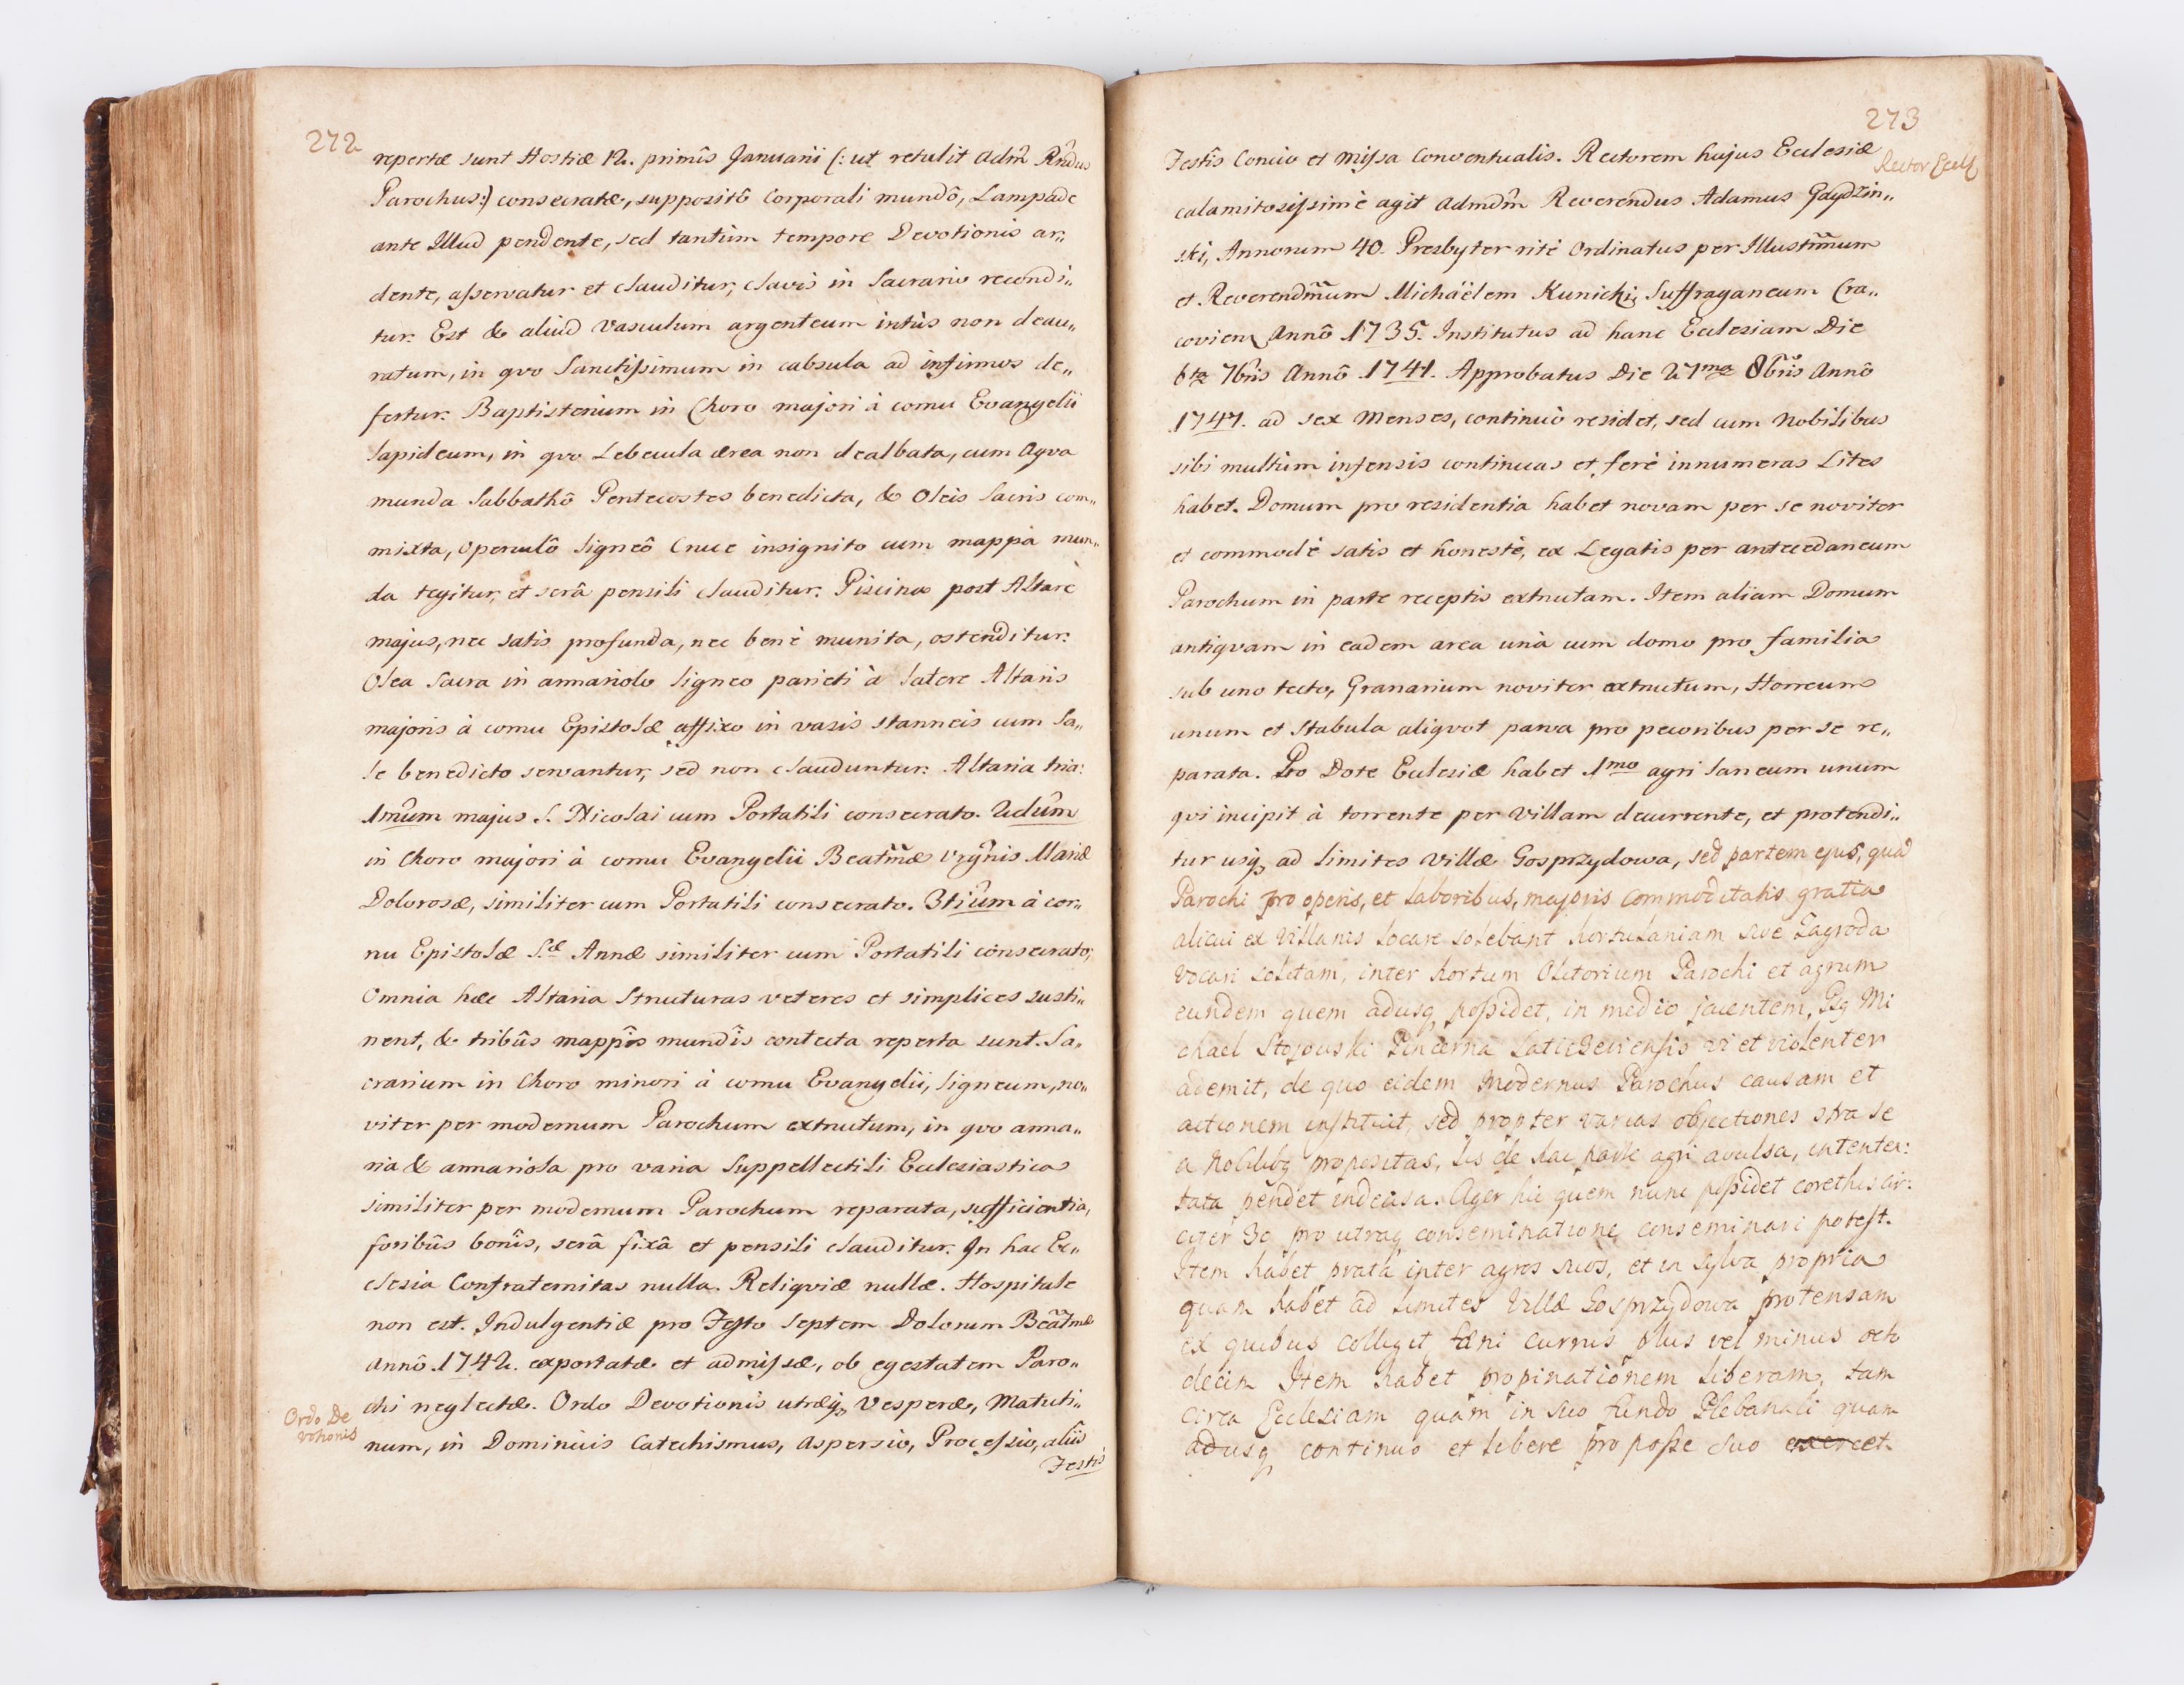 272
repertæ sunt Hostiæ 12. primîs Januarii (: ut retulit Adm̂ Rn̂dus
Parochus:) consecratæ, suppositô Corporali mundô, Lampade
ante Illud pendente, sed tantùm tempore Devotionis ar„
dente, asservatur et clauditur, clavis in Sacrario recondi„
tur. Est & aliud Vasculum argenteum intùs non deau„
ratum, in qvo Sanctissimum in cabsula ad infirmos de„
fertur. Baptisterium in Choro majori à cornu Evangelii
lapideum, in qvo Lebecula ærea non dealbata, cum Aqva
munda Sabbathô Pentecostes benedicta, & Oleis Sacris com„
mixta, Operculô ligneô Cruce insignito cum mappâ mun„
da tegitur, et serâ pensili clauditur. Piscina post Altare
majus, nec satis profunda, nec benè munita, ostenditur.
Olea Sacra in armariolo ligneo parieti à latere Altaris
majoris à cornu Epistolæ affixo in vasis stanneis cum Sa„
le benedicto servantur, sed non clauduntur. Altaria tria:
1mûm majus S. Nicolai cum Portatili consecrato. 2dûm
in Choro majori à cornu Evangelii Beatm̃æ Vrgĩnis Mariæ
Dolorosæ, similiter cum Portatili consecrato. 3tiûm à cor„
nu Epistolæ S.æ Annæ similiter cum Portatili consecrato;
Omnia hæc Altaria Structuras veteres et simplices susti„
nent, & tribûs mappîs mundîs contecta reperta sunt. Sa„
crarium in Choro minori à cornu Evangelii, ligneum, no„
viter per modernum Parochum extructum, in qvo arma„
ria & armariola pro varia Suppellectili Ecclesiastica
similiter per modernum Parochum reparata, sufficientia,
foribûs bonîs, serâ fixâ et pensili clauditur. In hac Ec„
clesia Confraternitas nulla. Reliqviæ nullæ. Hospitale
non est. Indulgentiæ pro Festo Septem Dolorum Beãtmæ
Annô 1742. exportatæ et admissæ, ob egestatem Paro„
chi neglectæ. Ordo Devotionis utræq, Vesperæ, Matuti„
Ordo De
votionis
num, in Dominicis Catechismus, Aspersio, Processio, aliis
Festis
273
Festîs Concio et Missa Conventualis. Rectorem hujus Ecclesiæ
Rector Eccl
calamitosissimè agit Admdm̂ Reverendus Adamus Gaydzin„
ski, Annorum 40. Presbyter ritè Ordinatus per Illustm̃mum
et Reverendm̃um Michaëlem Kunicki, Suffraganeum Cra„
covien Annô 1735. Institutus ad hanc Ecclesiam Die
6ta 7bris Annô 1741. Approbatus Die 27ma 8bris Annô
1747. ad sex Menses, continuò residet, sed cum Nobilibus
sibi multùm infensis continuas et ferè innumeras Lites
habet. Domum pro residentia habet novam per se noviter
et commodè satis et honestè, ex Legatis per antecedaneum
Parochum in parte receptis extructam. Item aliam Domum
antiqvam in eadem area unà cum domo pro familia
sub uno tecto, Granarium noviter extructum, Horreum
unum et Stabula aliqvot parva pro pecoribus per se re„
parata. Pro Dote Ecclesiæ habet 1mo agri laneum unum
qvi incipit à torrente per Villam decurrente, et protendi„
tur usq, ad limites Villæ Gosprzydowa, sed partem ejus, quã
Parochi pro operis, et laboribus, majoris commoditatis gratia
alicui ex Villanis locare solebant hortulaniam sive Zagroda
vocari solitam, inter hortum Olitorium Parochi et agrum
eundem quem adusq possidet, in medio jacentem, Gsq Mi
chael Stojowski Pincerna Laticzeviensis vi et violenter
ademit, de quo eidem Modernus Parochus causam et
actionem instituit, sed propter varias objectiones stra se
a Nobilibq propositas, lis de hac parte agri avulsa, intenta:
tata pendet indecisa. Ager hic quem nunc possidet corethis cir:
citer 30 pro utraq conseminatione conseminari potest.
Item habet prata inter agros suos, et in sylva propria
quam habet ad limites Villæ Gosprzydowa protensam
ex quibus colliget fæni currus plus vel minus octo
decim Item habet propinationem liberam, tam
circa Ecclesiam quam in suo fundo Plebanali quam
adusq continuo et libere pro posse suo exercet.